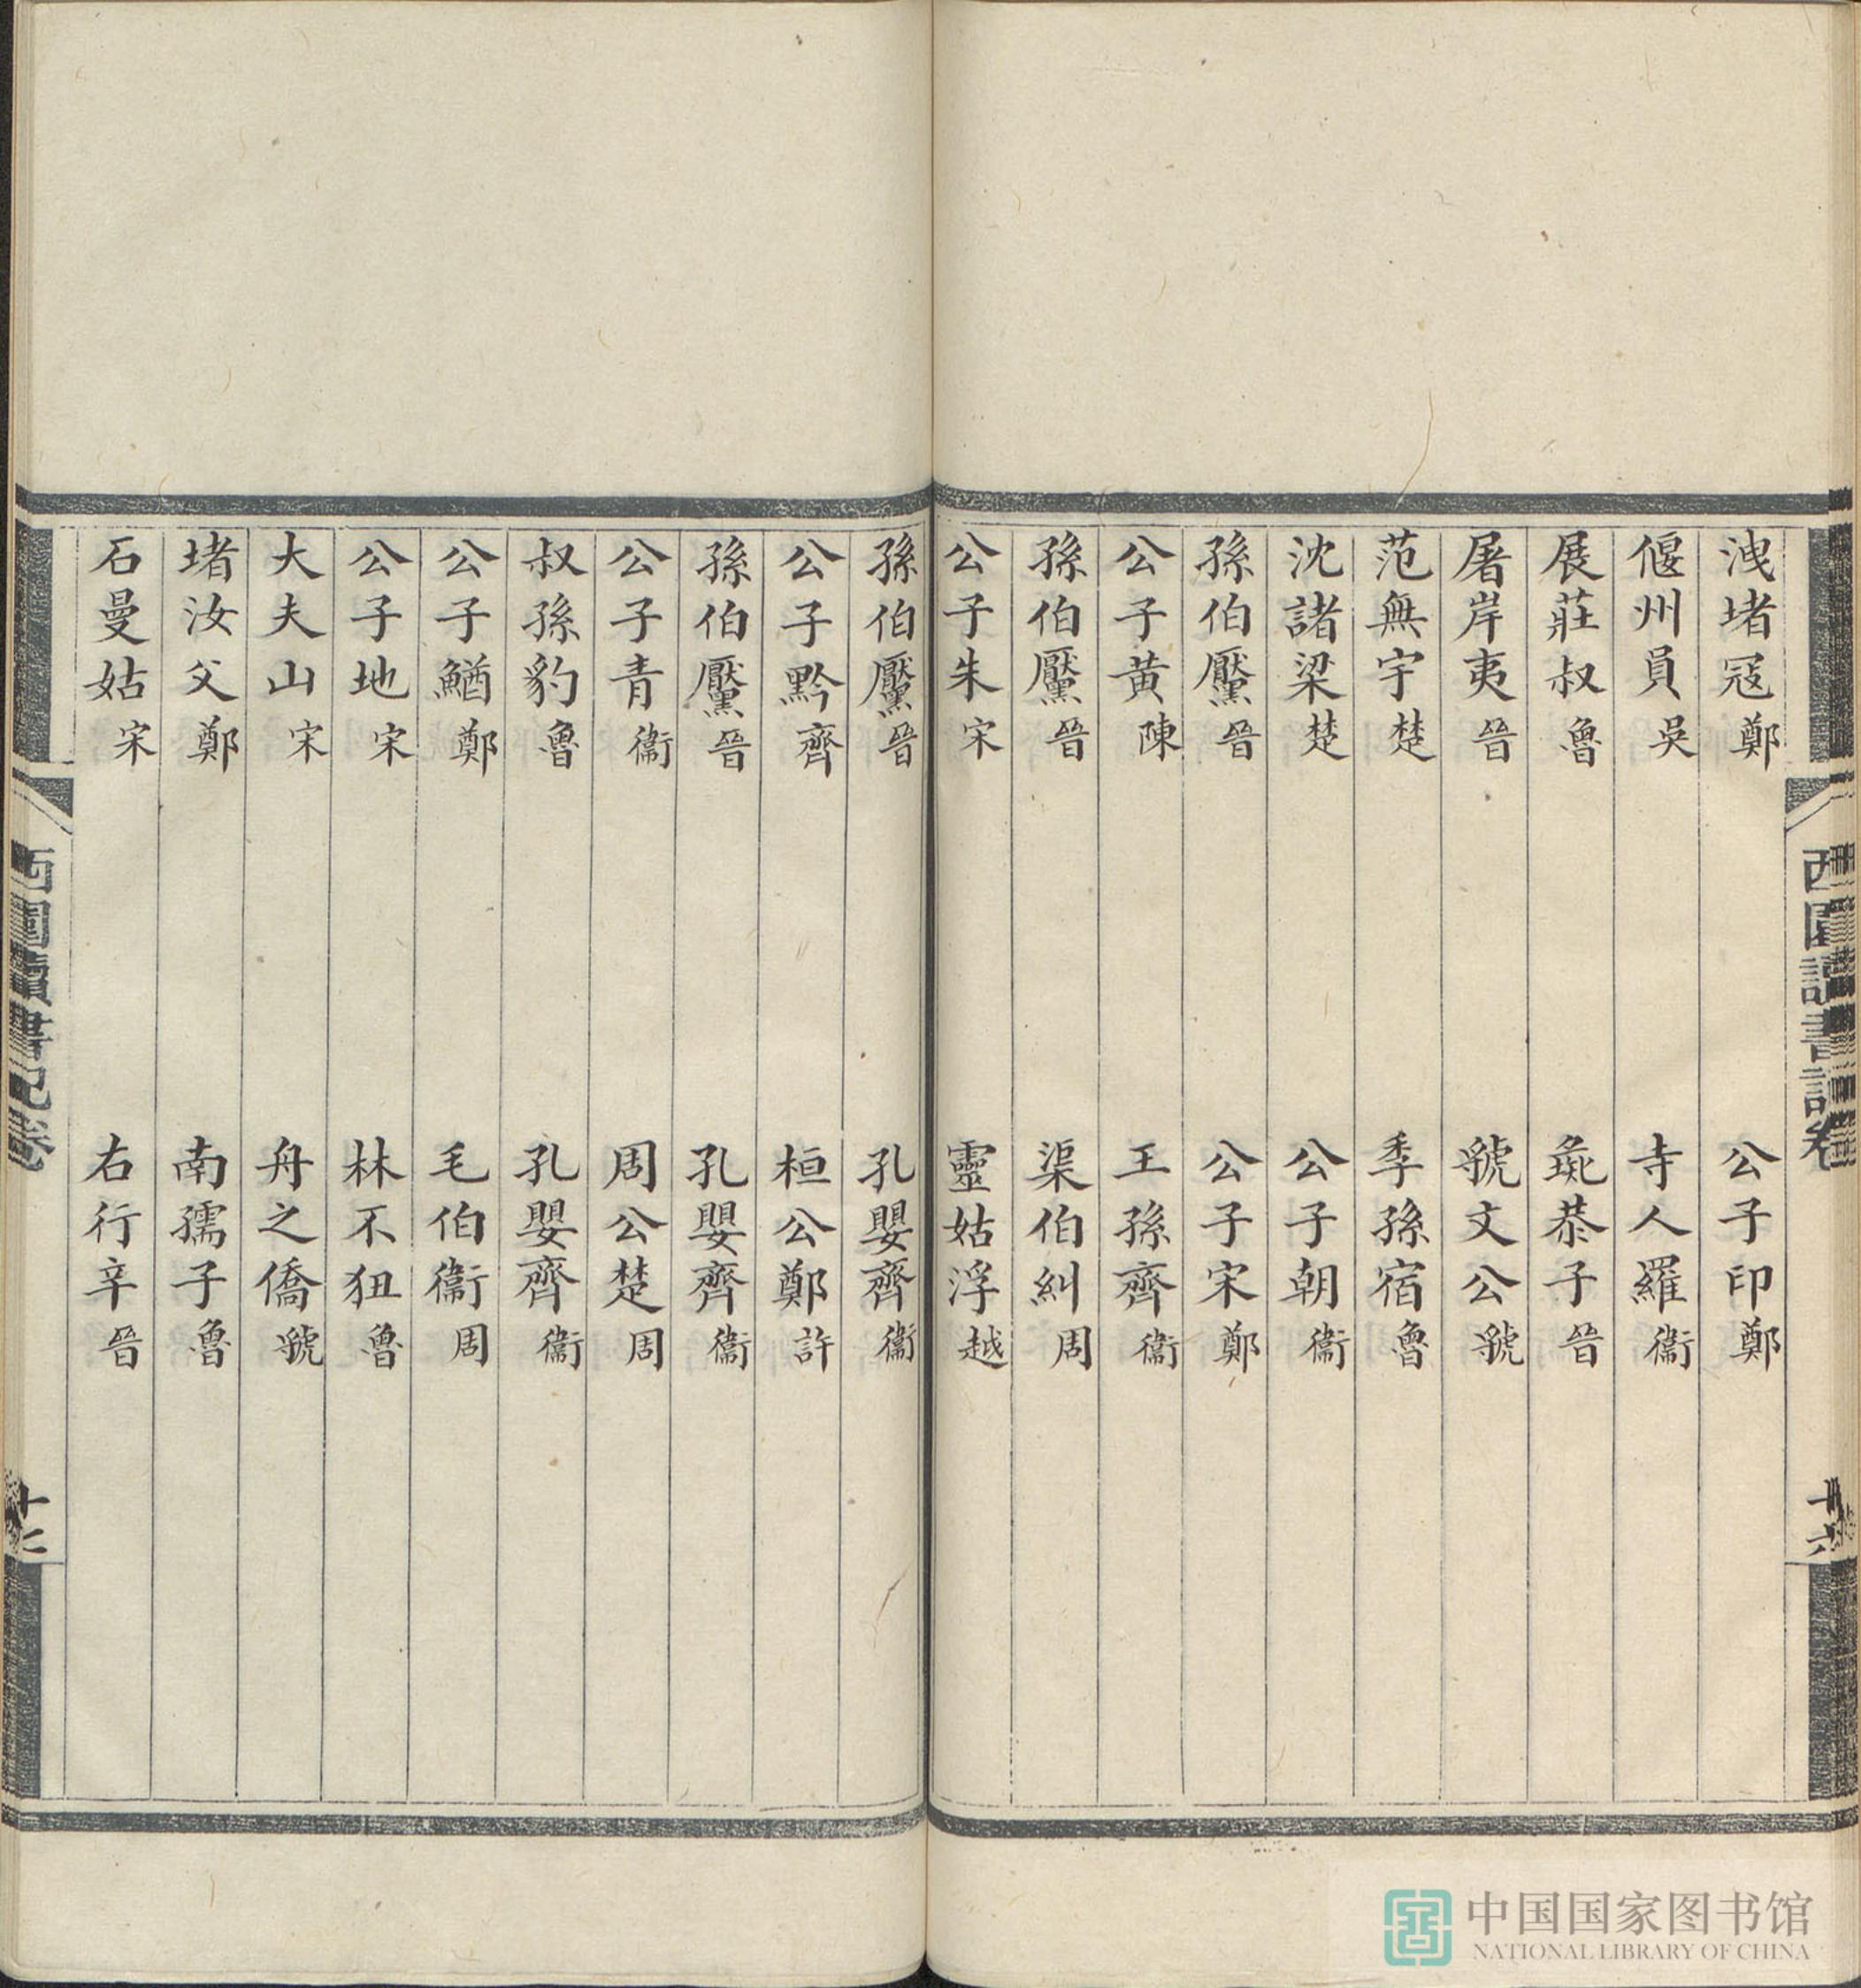 洩堵冦鄭 公子印鄭
偃州員吳 寺人羅衞
展莊叔魯 彘恭子晉
屠岸夷晉 虢文公虢
范無宇楚 季孫宿魯
沈諸梁楚 公子朝衞
孫伯黶晉 公子宋鄭
公子黃陳 王孫齊衞
孫伯黶晉 渠伯糾周
公子朱宋 靈姑浮越
孫伯黶晉 孔嬰齊衞
公子黔齊 桓公鄭許
孫伯黶晉 孔嬰齊衞
公子青衞 周公楚周
叔孫豹魯 孔嬰齊衞
公子鰌鄭 毛伯衞周
公子地宋 林不狃魯
大夫山宋 舟之僑虢
堵汝父鄭 南孺子魯
石曼姑宋 右行辛晉
西園讀書記卷
西園讀書記卷
中国国家图书馆
NATIONAL LIBRARY OF CHINA